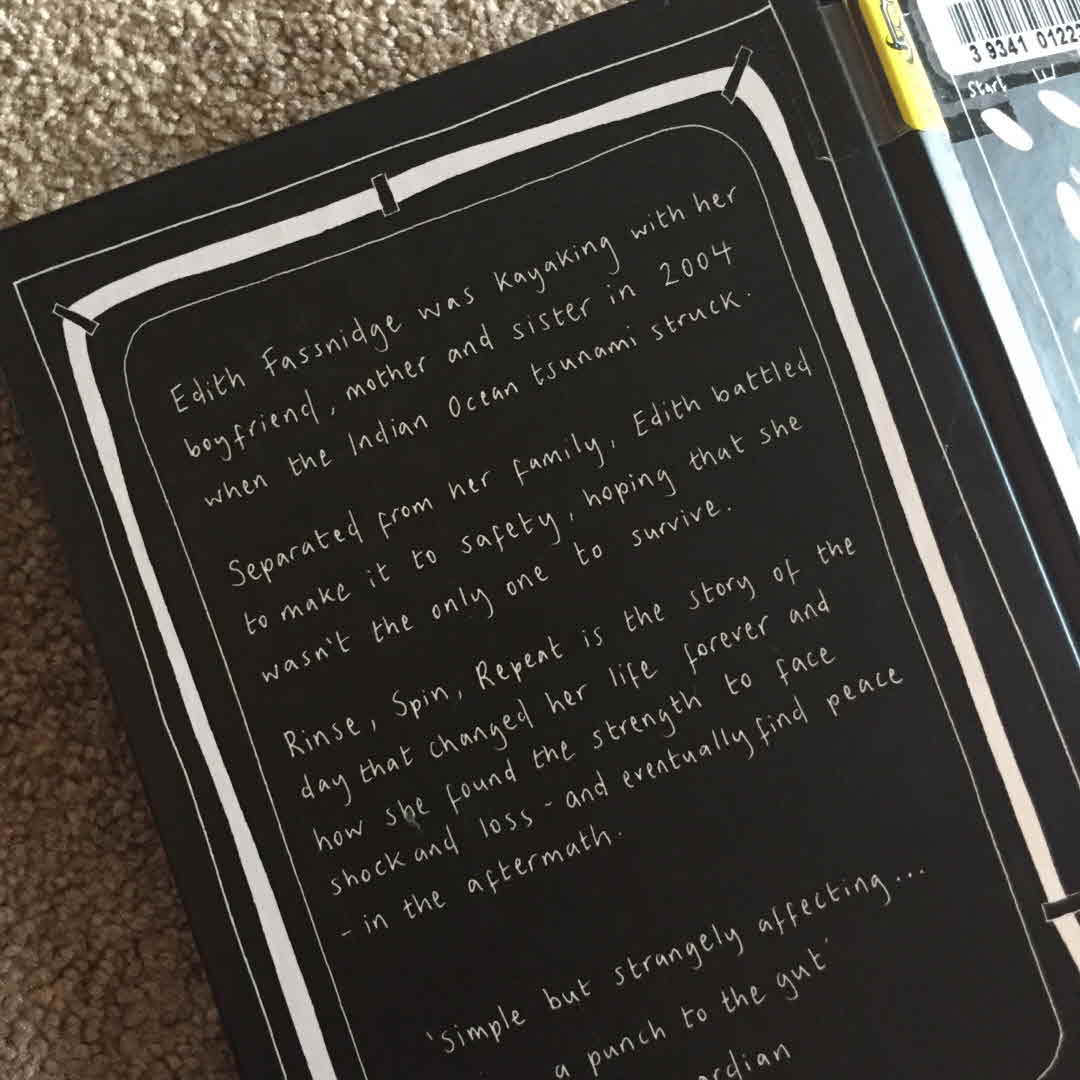 Edith Fassnidge was kayaking with her
boyfriend, mother and sister in 2004
when the Indian Ocean tsunami struck.
Separated from her family, Edith battled
to make it to safety, hoping that she
wasn't the only one to survive.
Rinse, Spin, Repeat is the story of the
day that changed her life forever and
how she found the strength to face
shock and loss - and eventually find peace
- in the aftermath.
'Simple but strangely affecting...
a punch to the gut'
3 9341
Start